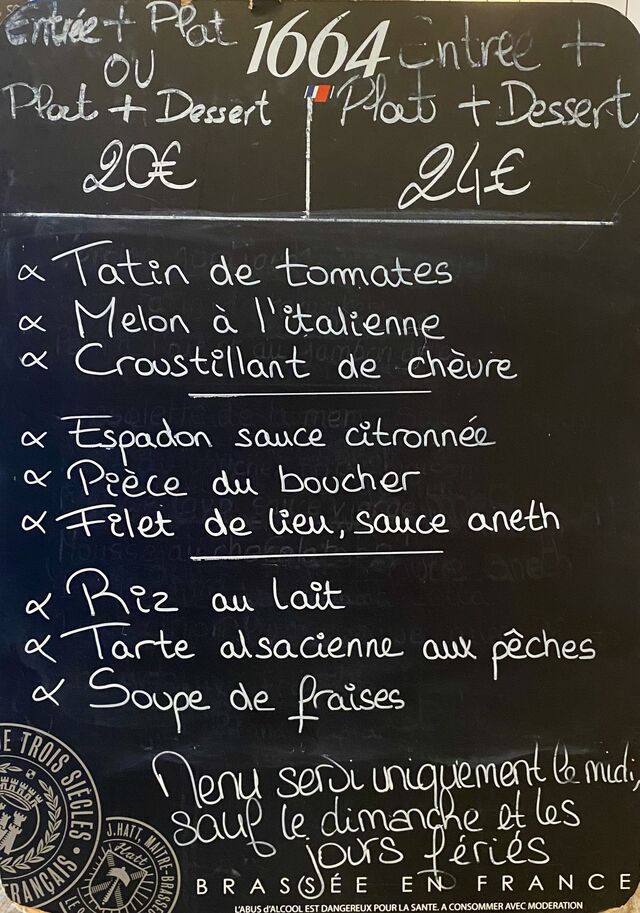 Entrée + Plat
OU
Plat + Dessert
20€
1664
Entrée +
Plat + Dessert
24€
Tatin de tommates
Melon à l'italienne
Croustillant de chèvre
Espadon sauce citronnée
Pièce du boucher
Filet de lieu, sauce aneth
Riz au lait
Tarte alsacienne aux pêches
Soupe de fraises
Menu servi uniquement le midi,
sauf le dimanche et les
jours fériés
DE TROIS SIÈCLES
FRANÇAIS
J.HATT MAITRE-BRASSEUR
Hatt
BRAS(S)ÉE EN FRANCE
L'ABUS d'ALCOOL EST DANGEREUX POUR LA SANTE. A CONSOMMER AVEC MODERATION